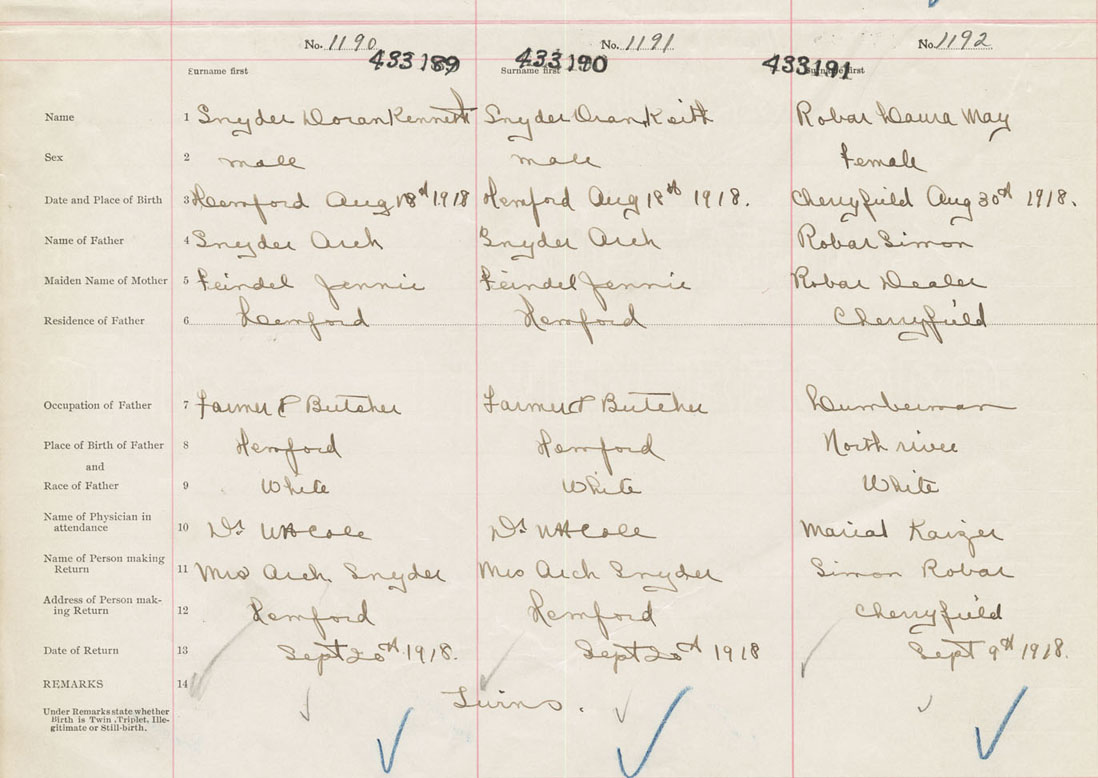 No. 1190 No. 1191 No. 1192
433189 433190 433191
Surname first Surname first Surname first
Name 1 Snyder Doran Kenneth Snyder Oran Keith Robar Laura May
Sex 2 male male Female
Date and Place of Birth 3 Hemford Aug 18th 1918 Hemford Aug 18th 1918. Cherryfield Aug 30th 1918.
Name of Father 4 Snyder Arch Snyder Arch Robar Simon
Maiden Name of Mother 5 Feindel Jennie Feindel Jennie Robar
Residence of Father 6 Hemford Hemford Cherryfield
Occupation of Father 7 Farmer & Butcher Farmer & Butcher Lumberman
Place of Birth of Father 8 Hemford Hemford North river
and
Race of Father 9 White White White
Name of Physician in
attendance 10 Dr W H Cole Dr W H Cole
Name of Person making
Return 11 Mrs Arch Snyder Mrs Arch Snyder Simon Robar
Address of Person mak-
ing Return 12 Hemford Hemford Cherryfield
Date of Return 13 Sept 20th 1918. Sept 20th 1918 Sept 9th 1918.
REMARKS 14 Twins.
Under Remarks state whether
Birth is Twin, Triplet, Ille-
gitimate or Still-birth.